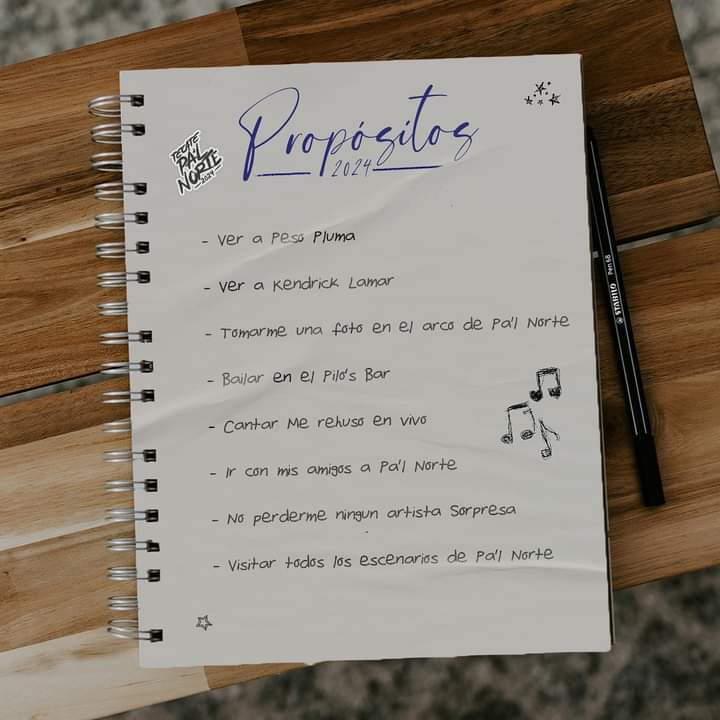 TECATE
PA'L
NORTE
2024
Propósitos
2024
- Ver a Peso Pluma
- Ver a Kendrick Lamar
- Tomarme una foto en el arco de Pa'l Norte
- Bailar en el Pilo's Bar
- Cantar Me rehuso en vivo
- Ir con mis amigos a Pa'l Norte
- No perderme ningun artista Sorpresa
- Visitar todos los escenarios de Pa'l Norte
STABILO Pen 68